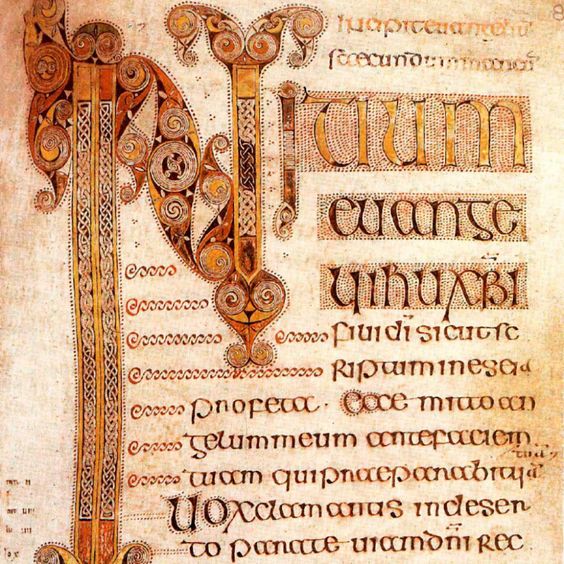 secundum marcum
INITIUM
euange
lii ihu xpi
fili di sicut sc
riptum in esaia
profeta · Ecce mitto an
gelum meum ante faciem
tuam qui praeparabit
Uox clamantis in deser
to parate uiam dn̄i rec